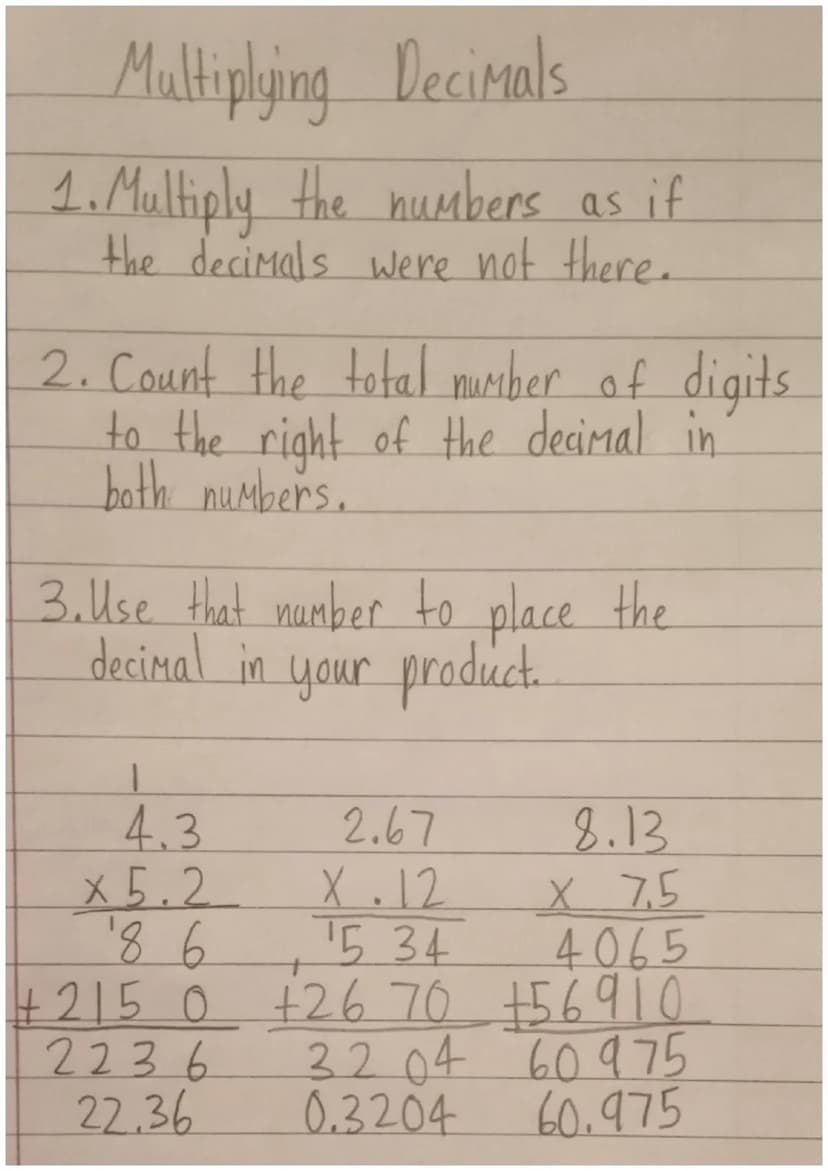 Multiplying Decimals
1. Multiply the numbers as if
the decimals were not there.
2. Count the total number of digits
to the right of the decimal in
both numbers.
3. Use that number to place the
decimal in your product.
1
4.3 2.67 8.13
x 5.2 x .12 x 7.5
'8 6 '5 34 4065
+ 215 0 +26 70 +56910
223 6 32 04 60975
22.36 0.3204 60.975